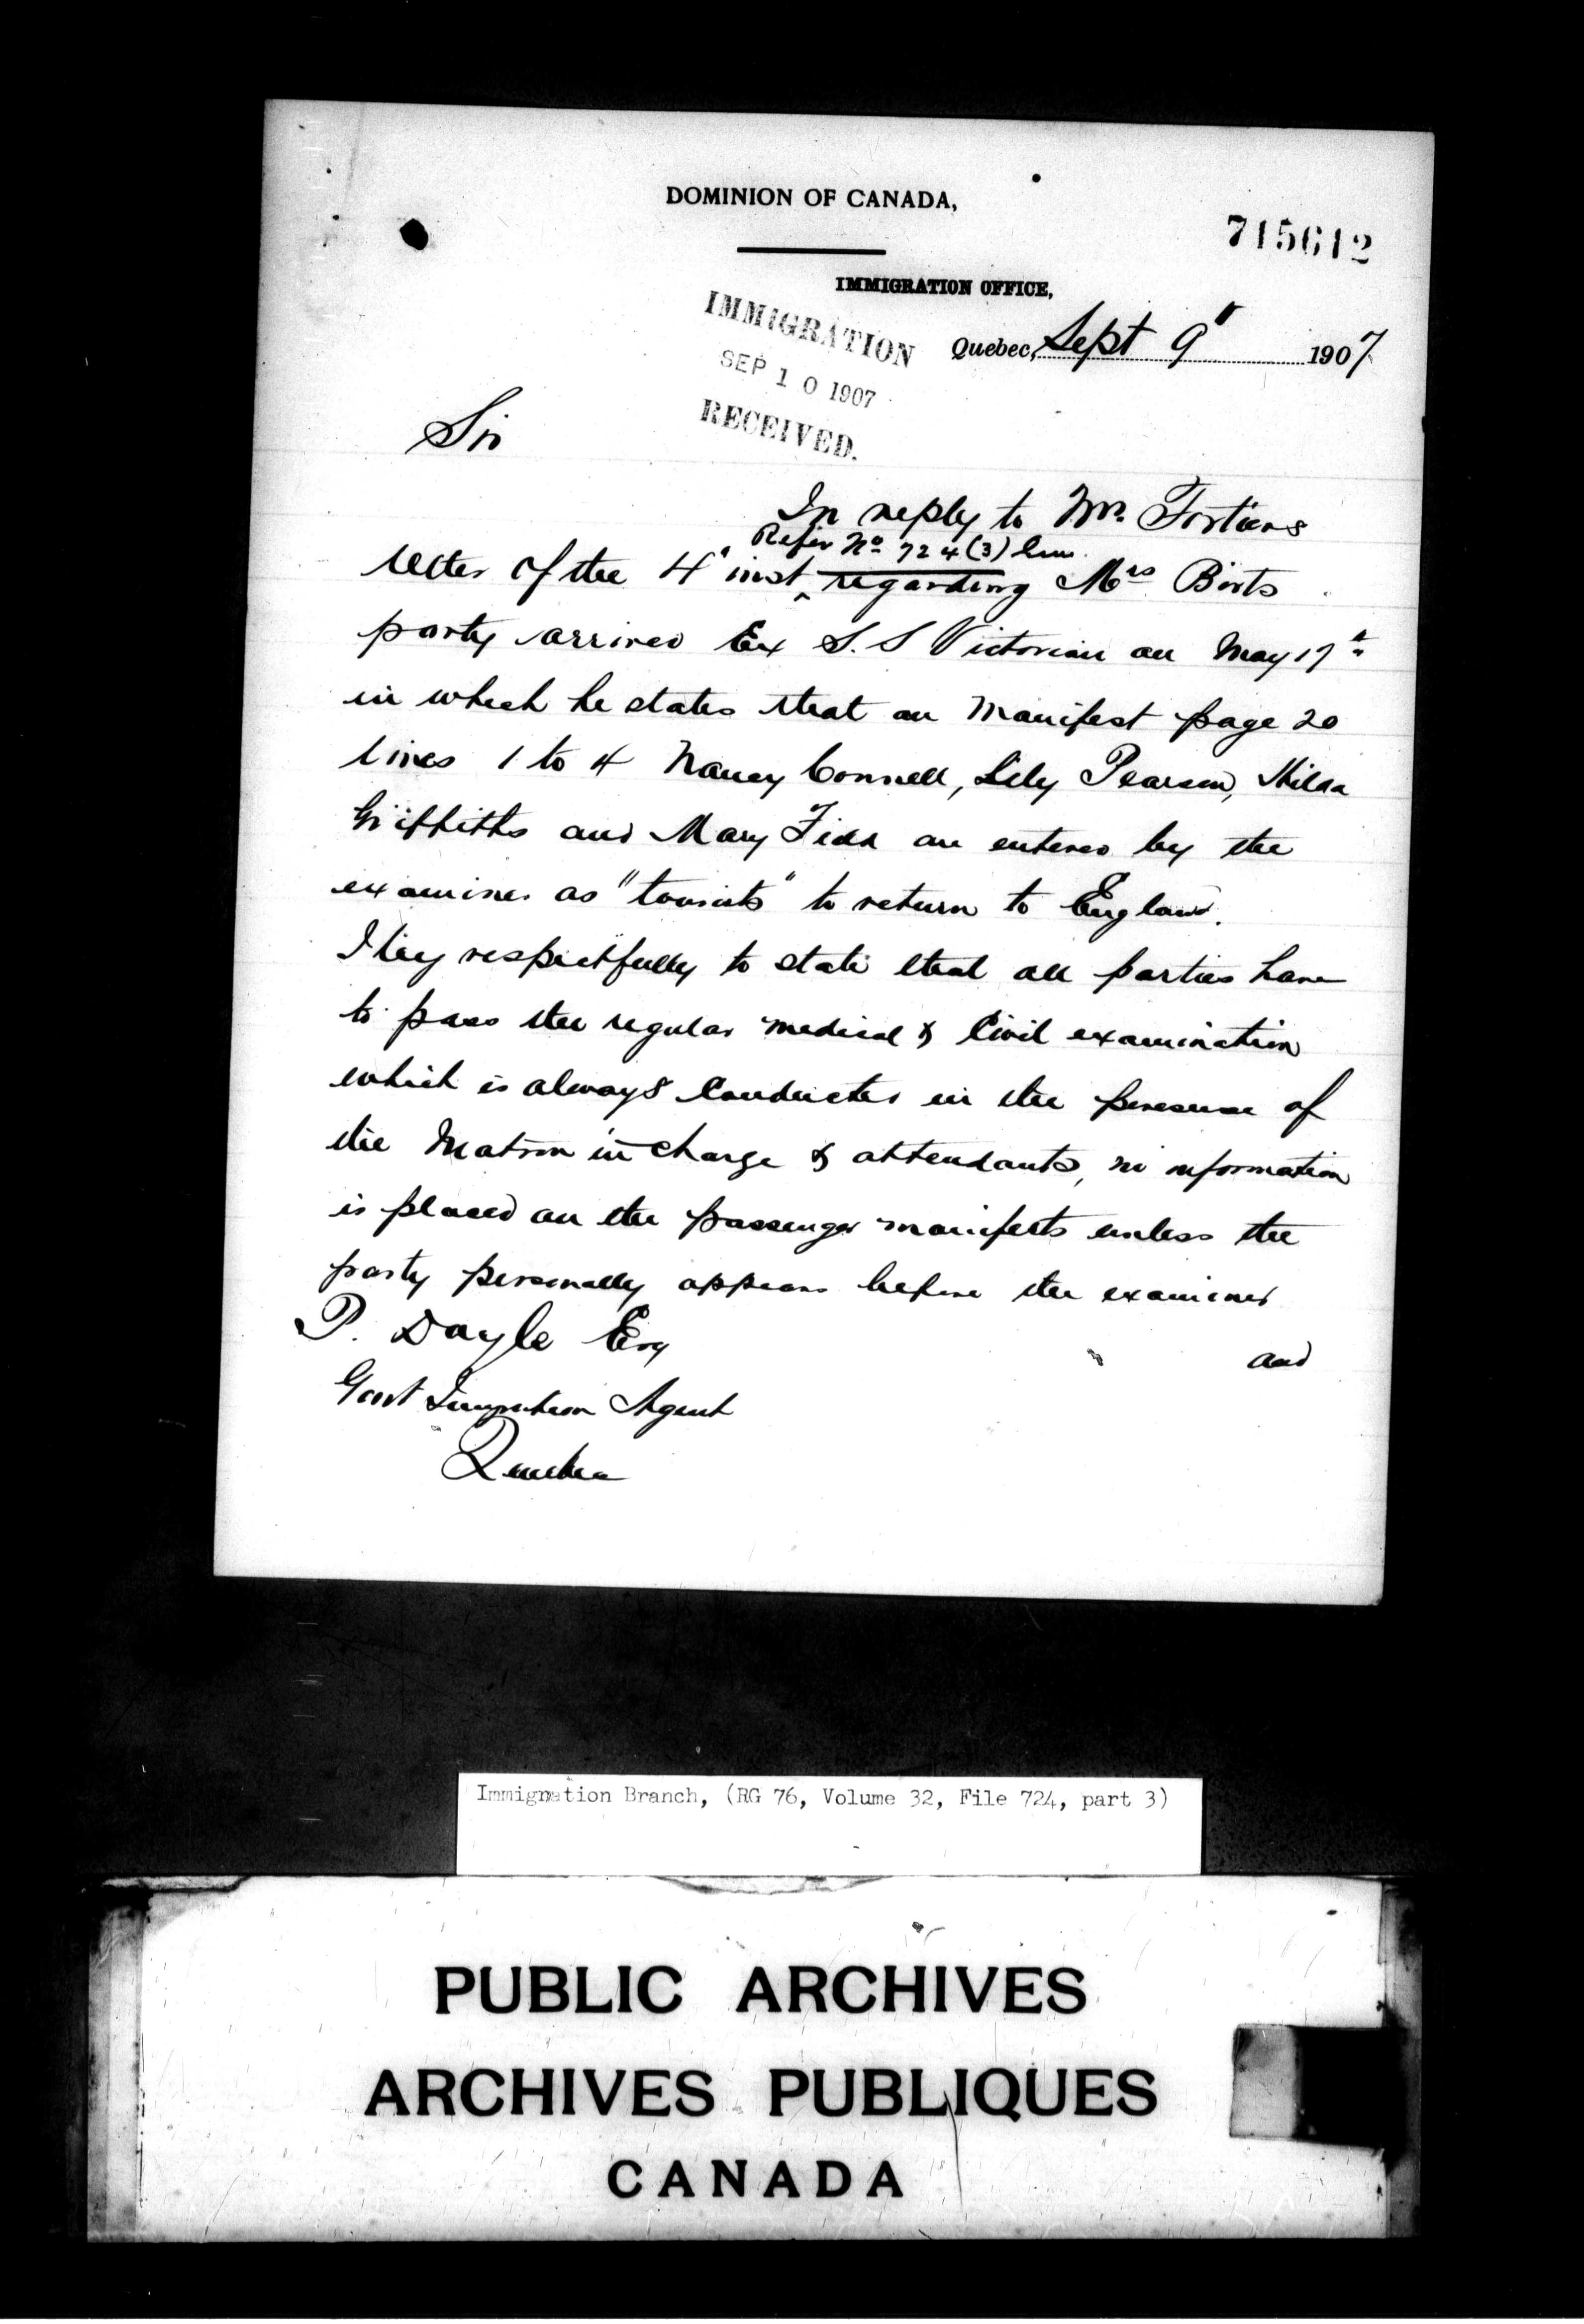 DOMINION OF CANADA,
715612
IMMIGRATION OFFICE,
IMMIGRATION
SEP 10 1907
RECEIVED.
Quebec, Sept 9" 1907
Sir
In reply to Mr. Fortiers
Refer No 724 (3) Imm.
letter of the 4" inst, regarding Mrs Birts
party arrived Ex S.S Victorian on May 17th
in which he states that on Manifest page 20
lines 1 to 4 Nancy Connell, Lily Pearson, Hilda
Griffiths and Mary Fidd are entered by the
examiner as "tourists" to return to England.
I beg respectfully to state that all parties have
to pass the regular medical & Civil examination
which is always Conducted in the presense of
the Matron in charge & attendants, no information
is placed on the passenger manifests unless the
party personally appears before the examiner
and
P. Doyle Esq
Govt Immigration Agent
Quebec
Immigration Branch, (RG 76, Volume 32, File 724, part 3)
PUBLIC ARCHIVES
ARCHIVES PUBLIQUES
CANADA